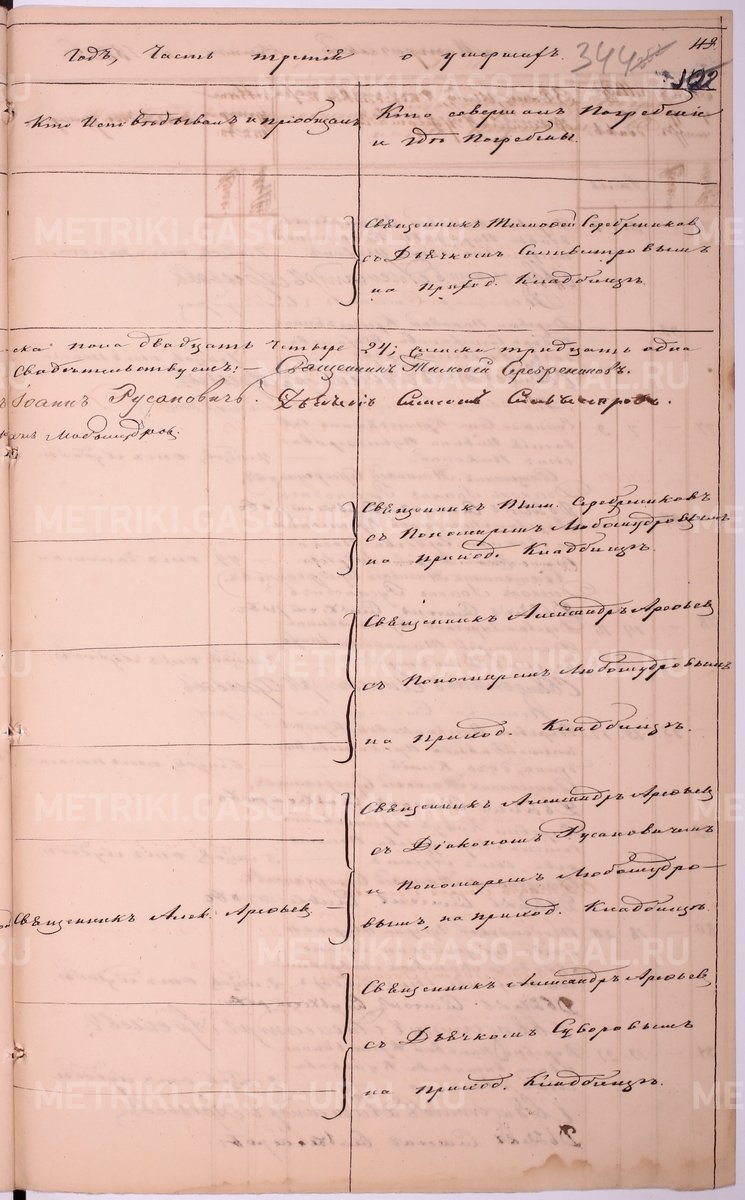 Годъ, Часть третія о умершихъ. 344
102
Кто Исповѣдывалъ и пріобщалъ
Кто совершалъ Погребеніе
и гдѣ Погребены.
Священникъ Тимофей Серебренниковъ
съ Дьячкомъ Сильвестровымъ
на Приход. Кладбищѣ.
ска пола двадцать четыре 24; женска тридцать одна
Свидѣтельствуемъ: – Священникъ Тимофей Серебрениковъ.
Іоаннъ Русановичь. Дьячекъ Симеонъ Сильвестровъ.
Любомудровъ.
Священникъ Тим. Серебрениковъ
съ Пономаремъ Любомудровымъ
на Приход. Кладбищѣ.
Священникъ Александръ Арефьев
съ Пономаремъ Любомудровымъ
на приход. Кладбищѣ.
Священникъ Александръ Арефьев
съ Діакономъ Русановичемъ
и Пономаремъ Любомудро-
вымъ, на приход. Кладбищѣ.
Священникъ Алек. Арефьев
Священникъ Александръ Арефьев
съ Дьячкомъ Суворовымъ
на приход. Кладбищѣ.
METRIKI.GASO-URAL.RU